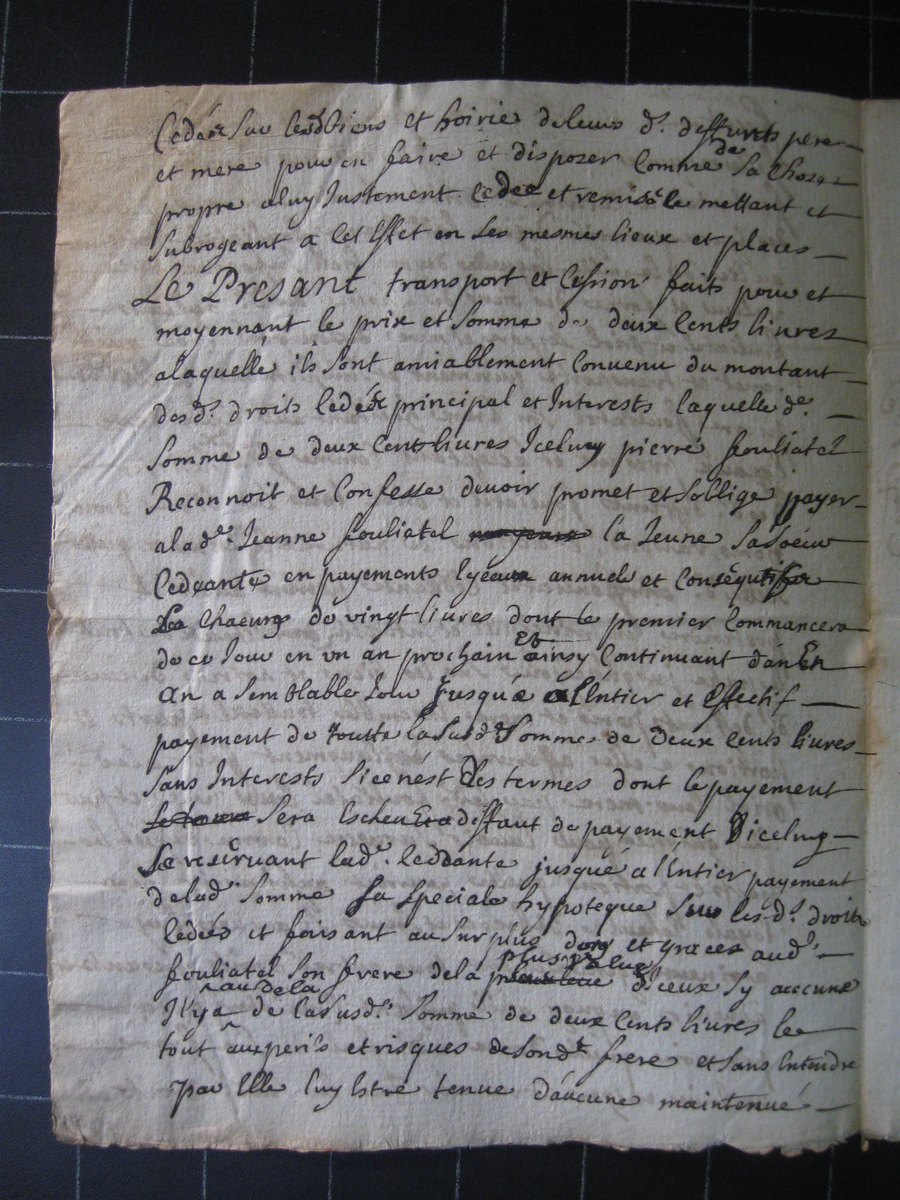 Cedés sur lesd. biens et hoirie de leurs ds. deffunts pere
et mere pour en faire et disposer Comme de Sa Choze
propre a luy Justement Cedée et remise le mettant et
Subrogeant a Cet Effet en Ses mesmes lieux et places
Le Presant transport et Cession faits pour et
moyennant le prix et Somme de deux Cents livres
alaquelle ils sont amiablement Convenu du montant
desds. droits Cedés principal et Interests laquelle de.
Somme de deux Cents livres Iceluy pierre fouliatel
Reconnoit et Confesse devoir promet et Soblige payer
alade. Jeanne fouliatel la Jeune Sa Soeur
Cedeante en payements Egeaux annuels et Conséqutifs
Chacuns de vingt livres dont le premier Commancera
de ce Jour en un an prochain Et ainsy Continuant dan En
An a Semblable Jour Jusqué a l'Entier et Effectif
payement de toutte la Susde Somme de deux Cents livres
Sans Interests Sice nést des termes dont le payement
Sera Escheu Et a deffaut de payement D'iceluy
Se resérvant lade. Ceddante jusqué a l'Entier payement
delade. Somme Sa Speciale hypoteque Sur lesds. droits
Cedés et faisant au Surplus don et graces aud.
fouliatel Son frere de la plus value d'iceux Sy auccune
Il y a au dela de la Susde. Somme de deux Cents livres le
tout aux perils et risques de Sondt. frere et Sans Entendre
par Elle luy Estre tenue d'aucune maintenué